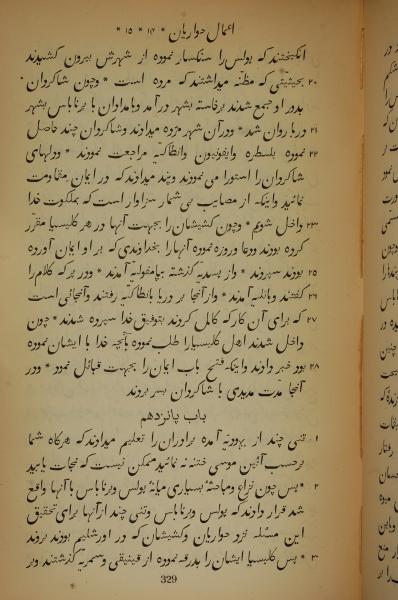 اعمال حواریان * ۱۴ * ۱۵ *
انکیختند که پولس را سنکسار نموده از شهرش بیرون کشیدند
۲۰ بحیثیتی که مظنه میداشتند که مرده است * وچون شاکردان
بدور او جمع شدند برخاسته بشهر در آمد وبامدادان با برناباس بشهر
۲۱ دربا روان شد * ودر آن شهر مژده میدادند وشاکردان چند حاصل
۲۲ نموده بلسطره وایقونیون وانطاکیه مراجعت نمودند * ودلهای
شاکردان را استورا می نمودند وپند میدادند که در ایمان مقاومت
نمائید واینکه از مصایب بی شمار سزاوار است که بملکوت خدا
۲۳ داخل شویم * وچون کشیشان را بجهت آنها در هر کلیسیا مقرر
کرده بودند ودعا وروزه نموده آنها را بخداوندی که بر او ایمان آورده
۲۵ بودند سپردند * واز پسدیه کذشته بپامفولیه آمدند * ودر پرکه کلام را
۲۶ کفتند وباتلیه آمدند * واز آنجا بر دریا بانطاکیه رفتند وآنجائی است
۲۷ که برای آن کار که کامل کردند بتوفیق خدا سپرده شدند * چون
داخل شدند اهل کلیسیا را طلب نموده بآنچه خدا با ایشان نموده
۲۸ بود خبر دادند واینکه فتح باب ایمان را بجهت قبائل نمود * ودر
آنجا مدت مدیدی با شاکردان بسر بردند
باب پانزدهم
۱ تنی چند از یهودیه آمده برادران را تعلیم میدادند که هرکاه شما
برحسب آئین موسی ختنه نه نمائید ممکن نیست که نجات یابید
۲ * پس چون نزاع ومباحثه بسیاری میانه پولس وبرناباس با آنها واقع
شد قرار دادند که پولس وبرناباس وتنی چند از آنها برای تحقیق
این مسئله نزد حواریان وکشیشان که در اورشلیم بودند بروند
۳ * پس کلیسیا ایشان را بدرقه نموده از فینیقی وسمریه کذشتند وبر
329